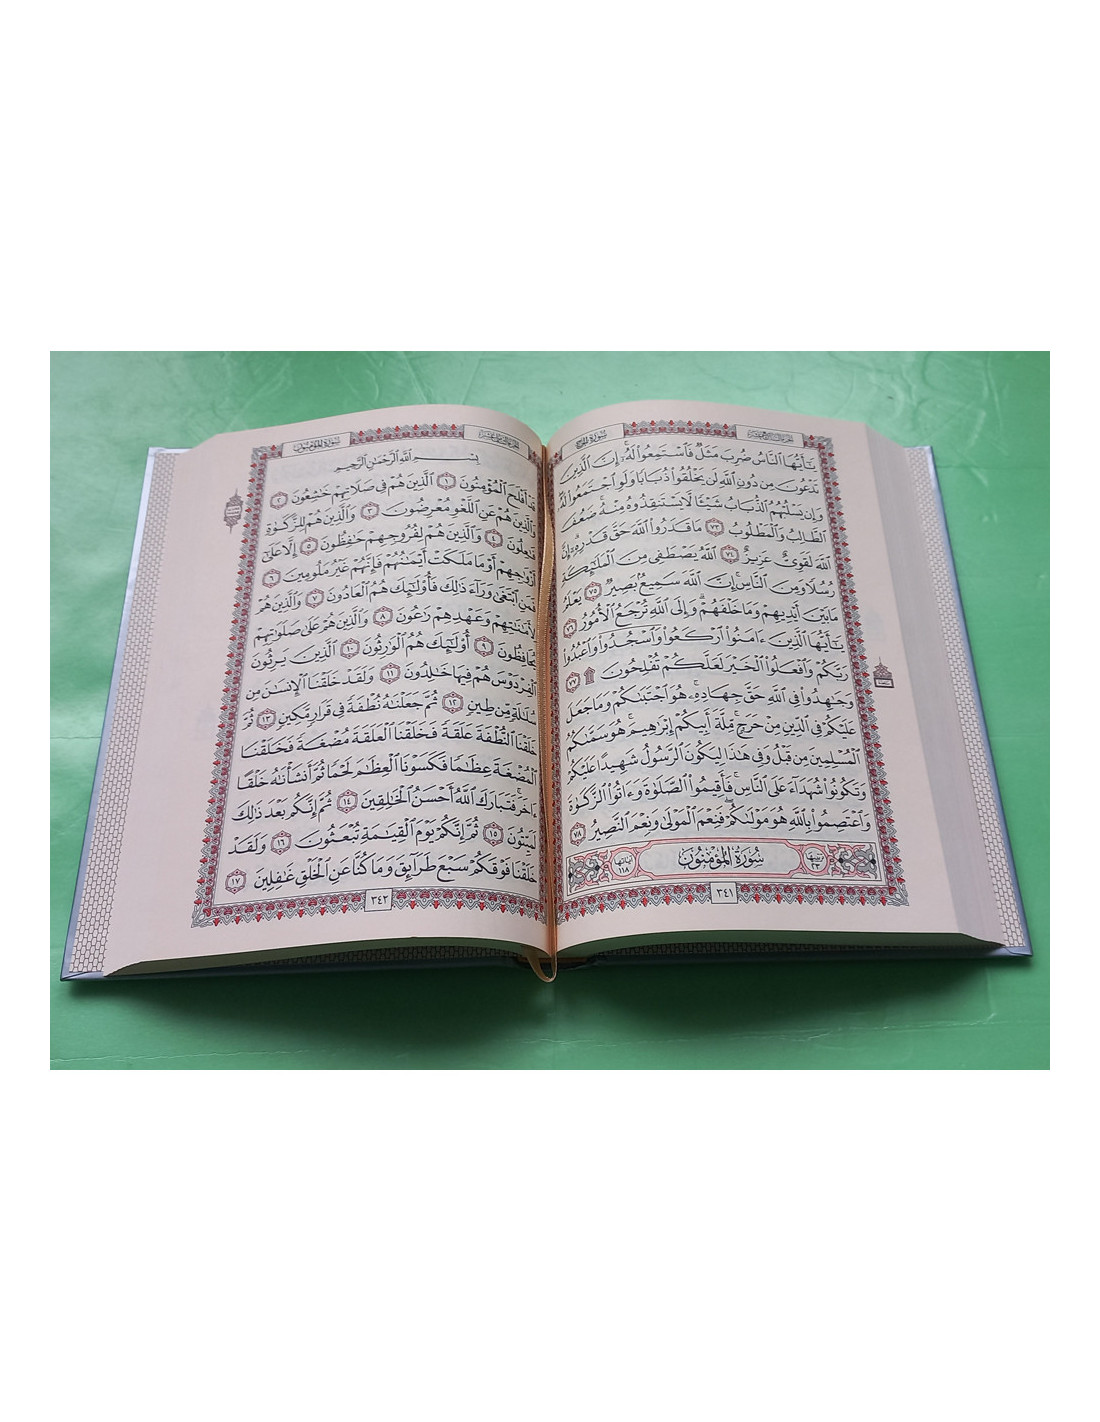 سورة الحج
يَٰٓأَيُّهَا ٱلنَّاسُ ضُرِبَ مَثَلٌ فَٱسْتَمِعُوا۟ لَهُۥٓ ۚ إِنَّ ٱلَّذِينَ
تَدْعُونَ مِن دُونِ ٱللَّهِ لَن يَخْلُقُوا۟ ذُبَابًا وَلَوِ ٱجْتَمَعُوا۟ لَهُۥ ۖ
وَإِن يَسْلُبْهُمُ ٱلذُّبَابُ شَيْـًٔا لَّا يَسْتَنقِذُوهُ مِنْهُ ۚ ضَعُفَ
ٱلطَّالِبُ وَٱلْمَطْلُوبُ ٧٣ مَا قَدَرُوا۟ ٱللَّهَ حَقَّ قَدْرِهِۦٓ ۗ إِنَّ
ٱللَّهَ لَقَوِىٌّ عَزِيزٌ ٧٤ ٱللَّهُ يَصْطَفِى مِنَ ٱلْمَلَٰٓئِكَةِ
رُسُلًا وَمِنَ ٱلنَّاسِ ۚ إِنَّ ٱللَّهَ سَمِيعٌۢ بَصِيرٌ ٧٥ يَعْلَمُ
مَا بَيْنَ أَيْدِيهِمْ وَمَا خَلْفَهُمْ ۗ وَإِلَى ٱللَّهِ تُرْجَعُ ٱلْأُمُورُ ٧٦
يَٰٓأَيُّهَا ٱلَّذِينَ ءَامَنُوا۟ ٱرْكَعُوا۟ وَٱسْجُدُوا۟ وَٱعْبُدُوا۟
رَبَّكُمْ وَٱفْعَلُوا۟ ٱلْخَيْرَ لَعَلَّكُمْ تُفْلِحُونَ ۩ ٧٧
وَجَٰهِدُوا۟ فِى ٱللَّهِ حَقَّ جِهَادِهِۦ ۚ هُوَ ٱجْتَبَىٰكُمْ وَمَا جَعَلَ
عَلَيْكُمْ فِى ٱلدِّينِ مِنْ حَرَجٍ ۚ مِّلَّةَ أَبِيكُمْ إِبْرَٰهِيمَ ۚ هُوَ سَمَّىٰكُمُ
ٱلْمُسْلِمِينَ مِن قَبْلُ وَفِى هَٰذَا لِيَكُونَ ٱلرَّسُولُ شَهِيدًا عَلَيْكُمْ
وَتَكُونُوا۟ شُهَدَآءَ عَلَى ٱلنَّاسِ ۚ فَأَقِيمُوا۟ ٱلصَّلَوٰةَ وَءَاتُوا۟ ٱلزَّكَوٰةَ
وَٱعْتَصِمُوا۟ بِٱللَّهِ هُوَ مَوْلَىٰكُمْ ۖ فَنِعْمَ ٱلْمَوْلَىٰ وَنِعْمَ ٱلنَّصِيرُ ٧٨
ترتيبها ٢٣ سُورَةُ الْمُؤْمِنُونَ آياتها ١١٨
٣٤١
سورة المؤمنون
بِسْمِ ٱللَّهِ ٱلرَّحْمَٰنِ ٱلرَّحِيمِ
قَدْ أَفْلَحَ ٱلْمُؤْمِنُونَ ١ ٱلَّذِينَ هُمْ فِى صَلَاتِهِمْ خَٰشِعُونَ ٢
وَٱلَّذِينَ هُمْ عَنِ ٱللَّغْوِ مُعْرِضُونَ ٣ وَٱلَّذِينَ هُمْ لِلزَّكَوٰةِ
فَٰعِلُونَ ٤ وَٱلَّذِينَ هُمْ لِفُرُوجِهِمْ حَٰفِظُونَ ٥ إِلَّا عَلَىٰٓ
أَزْوَٰجِهِمْ أَوْ مَا مَلَكَتْ أَيْمَٰنُهُمْ فَإِنَّهُمْ غَيْرُ مَلُومِينَ ٦
فَمَنِ ٱبْتَغَىٰ وَرَآءَ ذَٰلِكَ فَأُو۟لَٰٓئِكَ هُمُ ٱلْعَادُونَ ٧ وَٱلَّذِينَ هُمْ
لِأَمَٰنَٰتِهِمْ وَعَهْدِهِمْ رَٰعُونَ ٨ وَٱلَّذِينَ هُمْ عَلَىٰ صَلَوَٰتِهِمْ
يُحَافِظُونَ ٩ أُو۟لَٰٓئِكَ هُمُ ٱلْوَٰرِثُونَ ١٠ ٱلَّذِينَ يَرِثُونَ
ٱلْفِرْدَوْسَ هُمْ فِيهَا خَٰلِدُونَ ١١ وَلَقَدْ خَلَقْنَا ٱلْإِنسَٰنَ مِن
سُلَٰلَةٍ مِّن طِينٍ ١٢ ثُمَّ جَعَلْنَٰهُ نُطْفَةً فِى قَرَارٍ مَّكِينٍ ١٣ ثُمَّ
خَلَقْنَا ٱلنُّطْفَةَ عَلَقَةً فَخَلَقْنَا ٱلْعَلَقَةَ مُضْغَةً فَخَلَقْنَا
ٱلْمُضْغَةَ عِظَٰمًا فَكَسَوْنَا ٱلْعِظَٰمَ لَحْمًا ثُمَّ أَنشَأْنَٰهُ خَلْقًا
ءَاخَرَ ۚ فَتَبَارَكَ ٱللَّهُ أَحْسَنُ ٱلْخَٰلِقِينَ ١٤ ثُمَّ إِنَّكُم بَعْدَ ذَٰلِكَ
لَمَيِّتُونَ ١٥ ثُمَّ إِنَّكُمْ يَوْمَ ٱلْقِيَٰمَةِ تُبْعَثُونَ ١٦ وَلَقَدْ
خَلَقْنَا فَوْقَكُمْ سَبْعَ طَرَآئِقَ وَمَا كُنَّا عَنِ ٱلْخَلْقِ غَٰفِلِينَ ١٧
٣٤٢